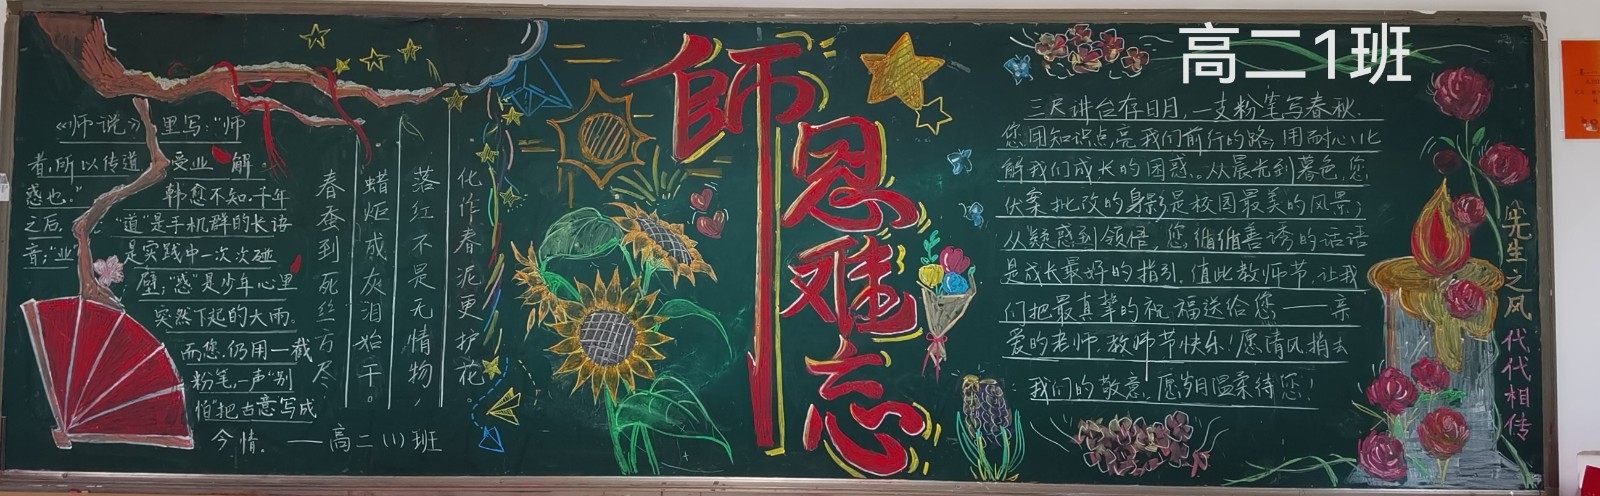 高二1班
《师说》里写:"师
者,所以传道 受业 解
惑也。" 韩愈不知,千年
之后,"道"是手机群的长语
音;"业"是实践中一次次碰
壁;"惑"是少年心里
突然下起的大雨。
而您,仍用一截
粉笔,一声"别
怕"把古意写成
今情。——高二(1)班
春蚕到死丝方尽,
蜡炬成灰泪始干。
落红不是无情物,
化作春泥更护花。
師恩难忘
三尺讲台存日月,一支粉笔写春秋.
您用知识点亮我们前行的路,用耐心化
解我们成长的困惑。从晨光到暮色,您
伏案批改的身影是校园最美的风景;
从疑惑到领悟,您循循善诱的话语
是成长最好的指引。值此教师节,让我
们把最真挚的祝福送给您——亲
爱的老师,教师节快乐!愿清风捎去
我们的敬意,愿岁月温柔待您!
先生之风 代代相传